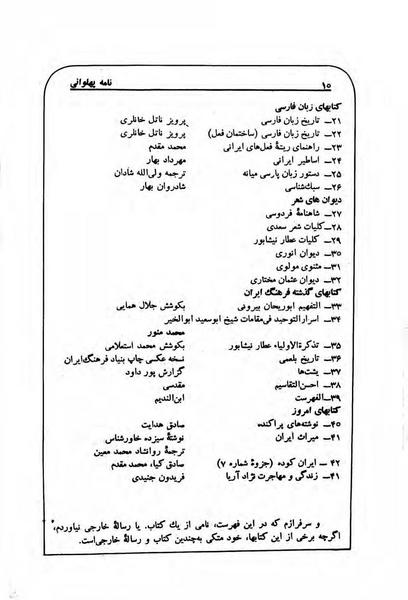 ۱۵ نامه پهلوانی
کتابهای زبان فارسی
۲۱ــ تاریخ زبان فارسی پرویز ناتل خانلری
۲۲ــ تاریخ زبان فارسی (ساختمان فعل) پرویز ناتل خانلری
۲۳ــ راهنمای ریشهٔ فعل‌های ایرانی محمد مقدم
۲۴ــ اساطیر ایرانی مهرداد بهار
۲۵ــ دستور زبان پارسی میانه ترجمه ولی‌الله شادان
۲۶ــ سبک‌شناسی شادروان بهار
دیوان های شعر
۲۷ــ شاهنامهٔ فردوسی
۲۸ــ کلیات شعر سعدی
۲۹ــ کلیات عطار نیشابور
۳۰ــ دیوان انوری
۳۱ــ مثنوی مولوی
۳۲ــ دیوان عثمان مختاری
کتابهای گذشته فرهنگ ایران
۳۳ــ التفهیم ابوریحان بیرونی بکوشش جلال همایی
۳۴ــ اسرارالتوحید فی‌مقامات شیخ ابوسعید ابوالخیر
محمد منور
۳۵ــ تذکرةالاولیاء عطار نیشابور بکوشش محمد استعلامی
۳۶ــ تاریخ بلعمی نسخه عکسی چاپ بنیاد فرهنگ ایران
۳۷ــ یشت‌ها گزارش پور داود
۳۸ــ احسن‌التقاسیم مقدسی
۳۹ــ الفهرست ابن‌الندیم
کتابهای امروز
۴۰ــ نوشته‌های پراکنده صادق هدایت
۴۱ــ میراث ایران نوشتهٔ سیزده خاورشناس
ترجمهٔ روانشاد محمد معین
۴۲ــ ایران کوده (جزوهٔ شماره ۷) صادق کیا، محمد مقدم
۴۱ــ زندگی و مهاجرت نژاد آریا فریدون جنیدی
و سرفرازم که در این فهرست، نامی از یک کتاب. یا رسالهٔ خارجی نیاوردم،
اگرچه برخی از این کتابها، خود متکی به‌چندین کتاب و رسالهٔ خارجی‌است.